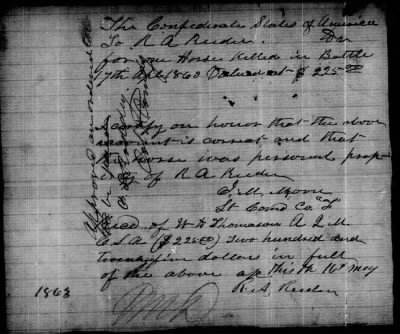 The Confederate States of America
To R A Reeder Dr
for one Horse Killed in Battle
17th Apl 1863 Valued at $225.00
I certify on honor that the above
account is correct and that
the horse was personal prop
erty of R A Reeder
J. M. Moore
Lt Comd Co "F"
Recd of W H Thomason A Q M
C S A ($225.00) Two hundred and
twenty five dollars in full
of the above a/c this the 16th May
1863 R. A. Reeder
Approved